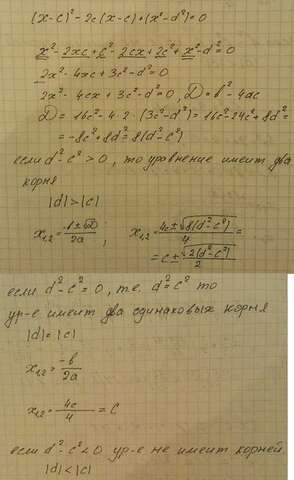 (x-c)²-2c(x-c)+(x²-d²)=0
x²-2xc+c²-2cx+2c²+x²-d²=0
2x²-4xc+3c²-d²=0
2x²-4cx+3c²-d²=0, D=b²-4ac
D=16c²-4·2·(3c²-d²)=16c²-24c²+8d²=
=-8c²+8d²=8(d²-c²)
если d²-c²>0, то уравнение имеит два
корня
|d|>|c|
x₁,₂=-b±√D/2a; x₁,₂=4c±√8(d²-c²)/4=
=c±√2(d²-c²)/2
если d²-c²=0, т.е. d²=c² то
ур-е имеит два одинаковых корня
|d|=|c|
x₁,₂=-b/2a
x₁,₂=4c/4=c
если d²-c²<0 ур-е не имеит корней.
|d|<|c|